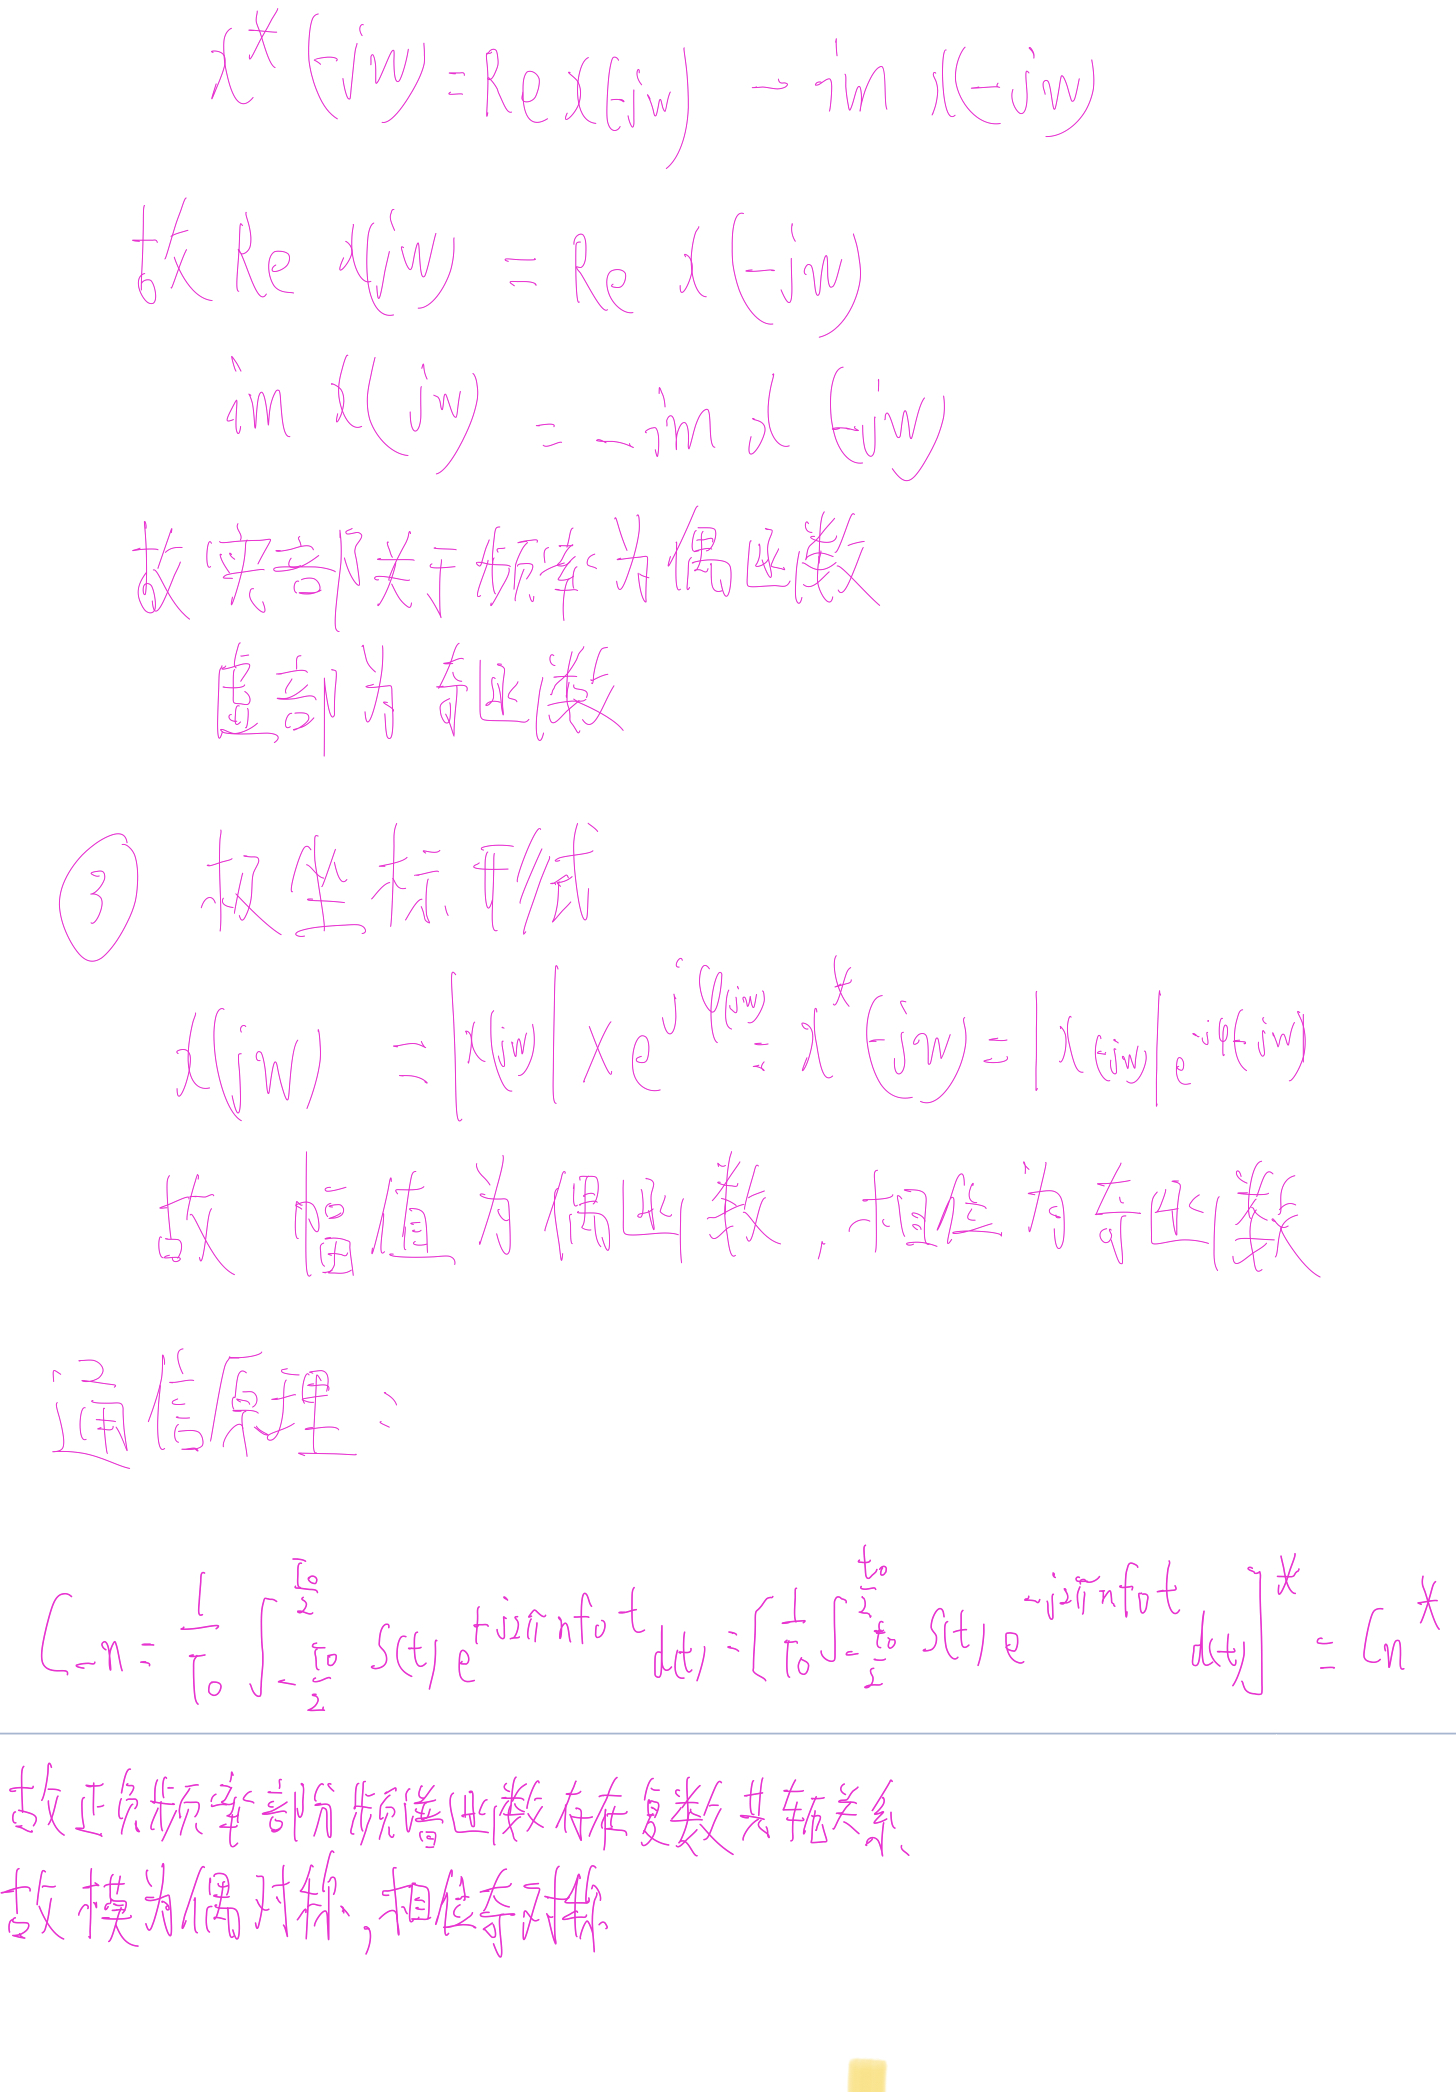 x*(-jw) = Re x(-jw) - im x(-jw)
故 Re x(jw) = Re x(-jw)
im x(jw) = -im x(-jw)
故实部关于频率为偶函数
虚部为奇函数
③ 极坐标形式
x(jw) = |x(jw)| × e^{jφ(jw)} = x*(-jw) = |x(-jw)| e^{-jφ(-jw)}
故 幅值为偶函数，相位为奇函数
通信原理：
C_{-n} = \frac{1}{T_0} ∫_{-\frac{T_0}{2}}^{\frac{T_0}{2}} S(t) e^{+j2πnf_0t} d(t) = [\frac{1}{T_0} ∫_{-\frac{t_0}{2}}^{\frac{t_0}{2}} S(t) e^{-j2πnf_0t} d(t)]^* = C_n^*
故正负频率部分频谱函数存在复数共轭关系、
故模为偶对称，相位奇对称